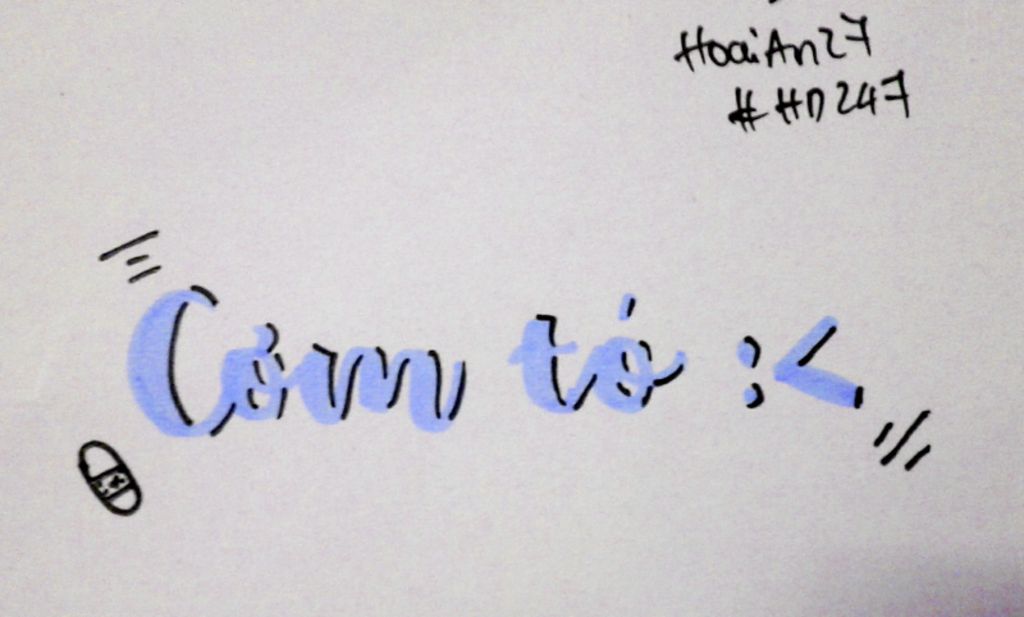 HoaiAn27
#HD247
Cơm tó :<